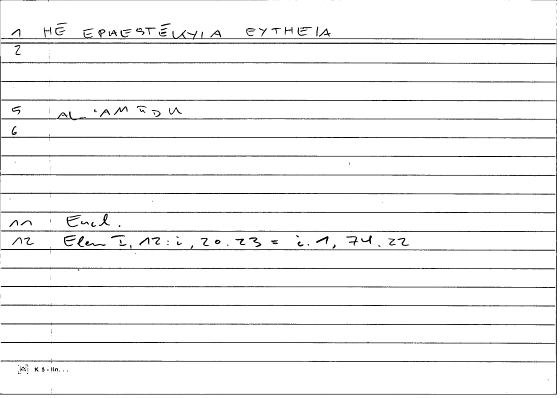 1 HĒ EPHESTĒKYIA EYTHEIA
2
5 AL-ʿAMŪDU
6
11 Eucl.
12 Elem I, 12: i, 20.23 = i.1, 74.22
K 5 - lin...